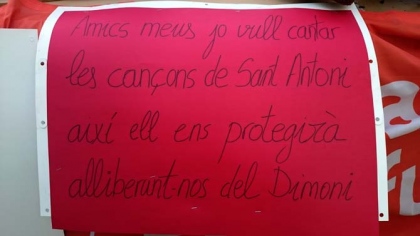 Amics meus jo vull cantar
les cançons de Sant Antoni
així ell ens protegirà
alliberant-nos del Dimoni